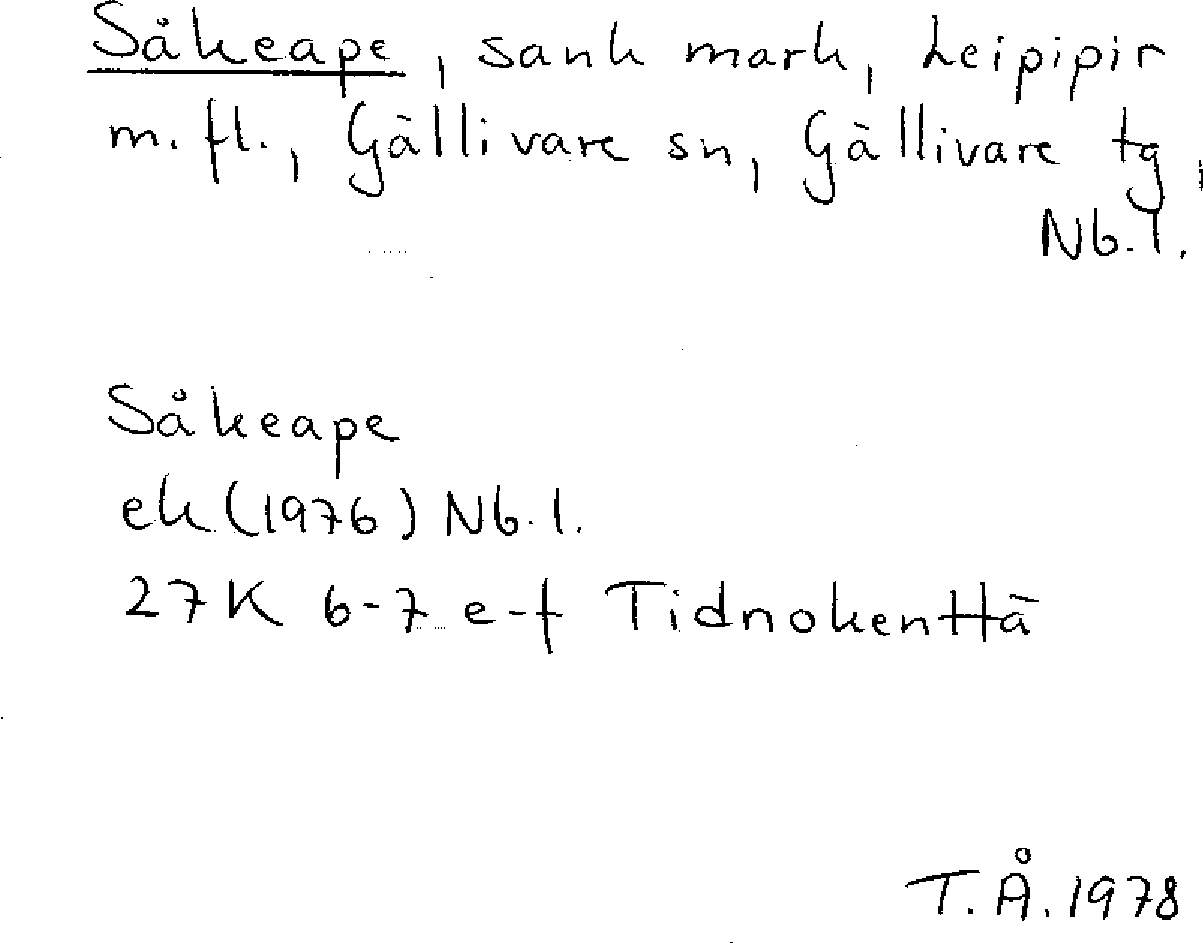 Såkeape, sank mark, Leipipir
m. fl., Gällivare sn, Gällivare tg,
Nb. l.
Såkeape
ek (1976) Nb. l.
27K 6-7 e-f Tidnokenttä
T. Å. 1978